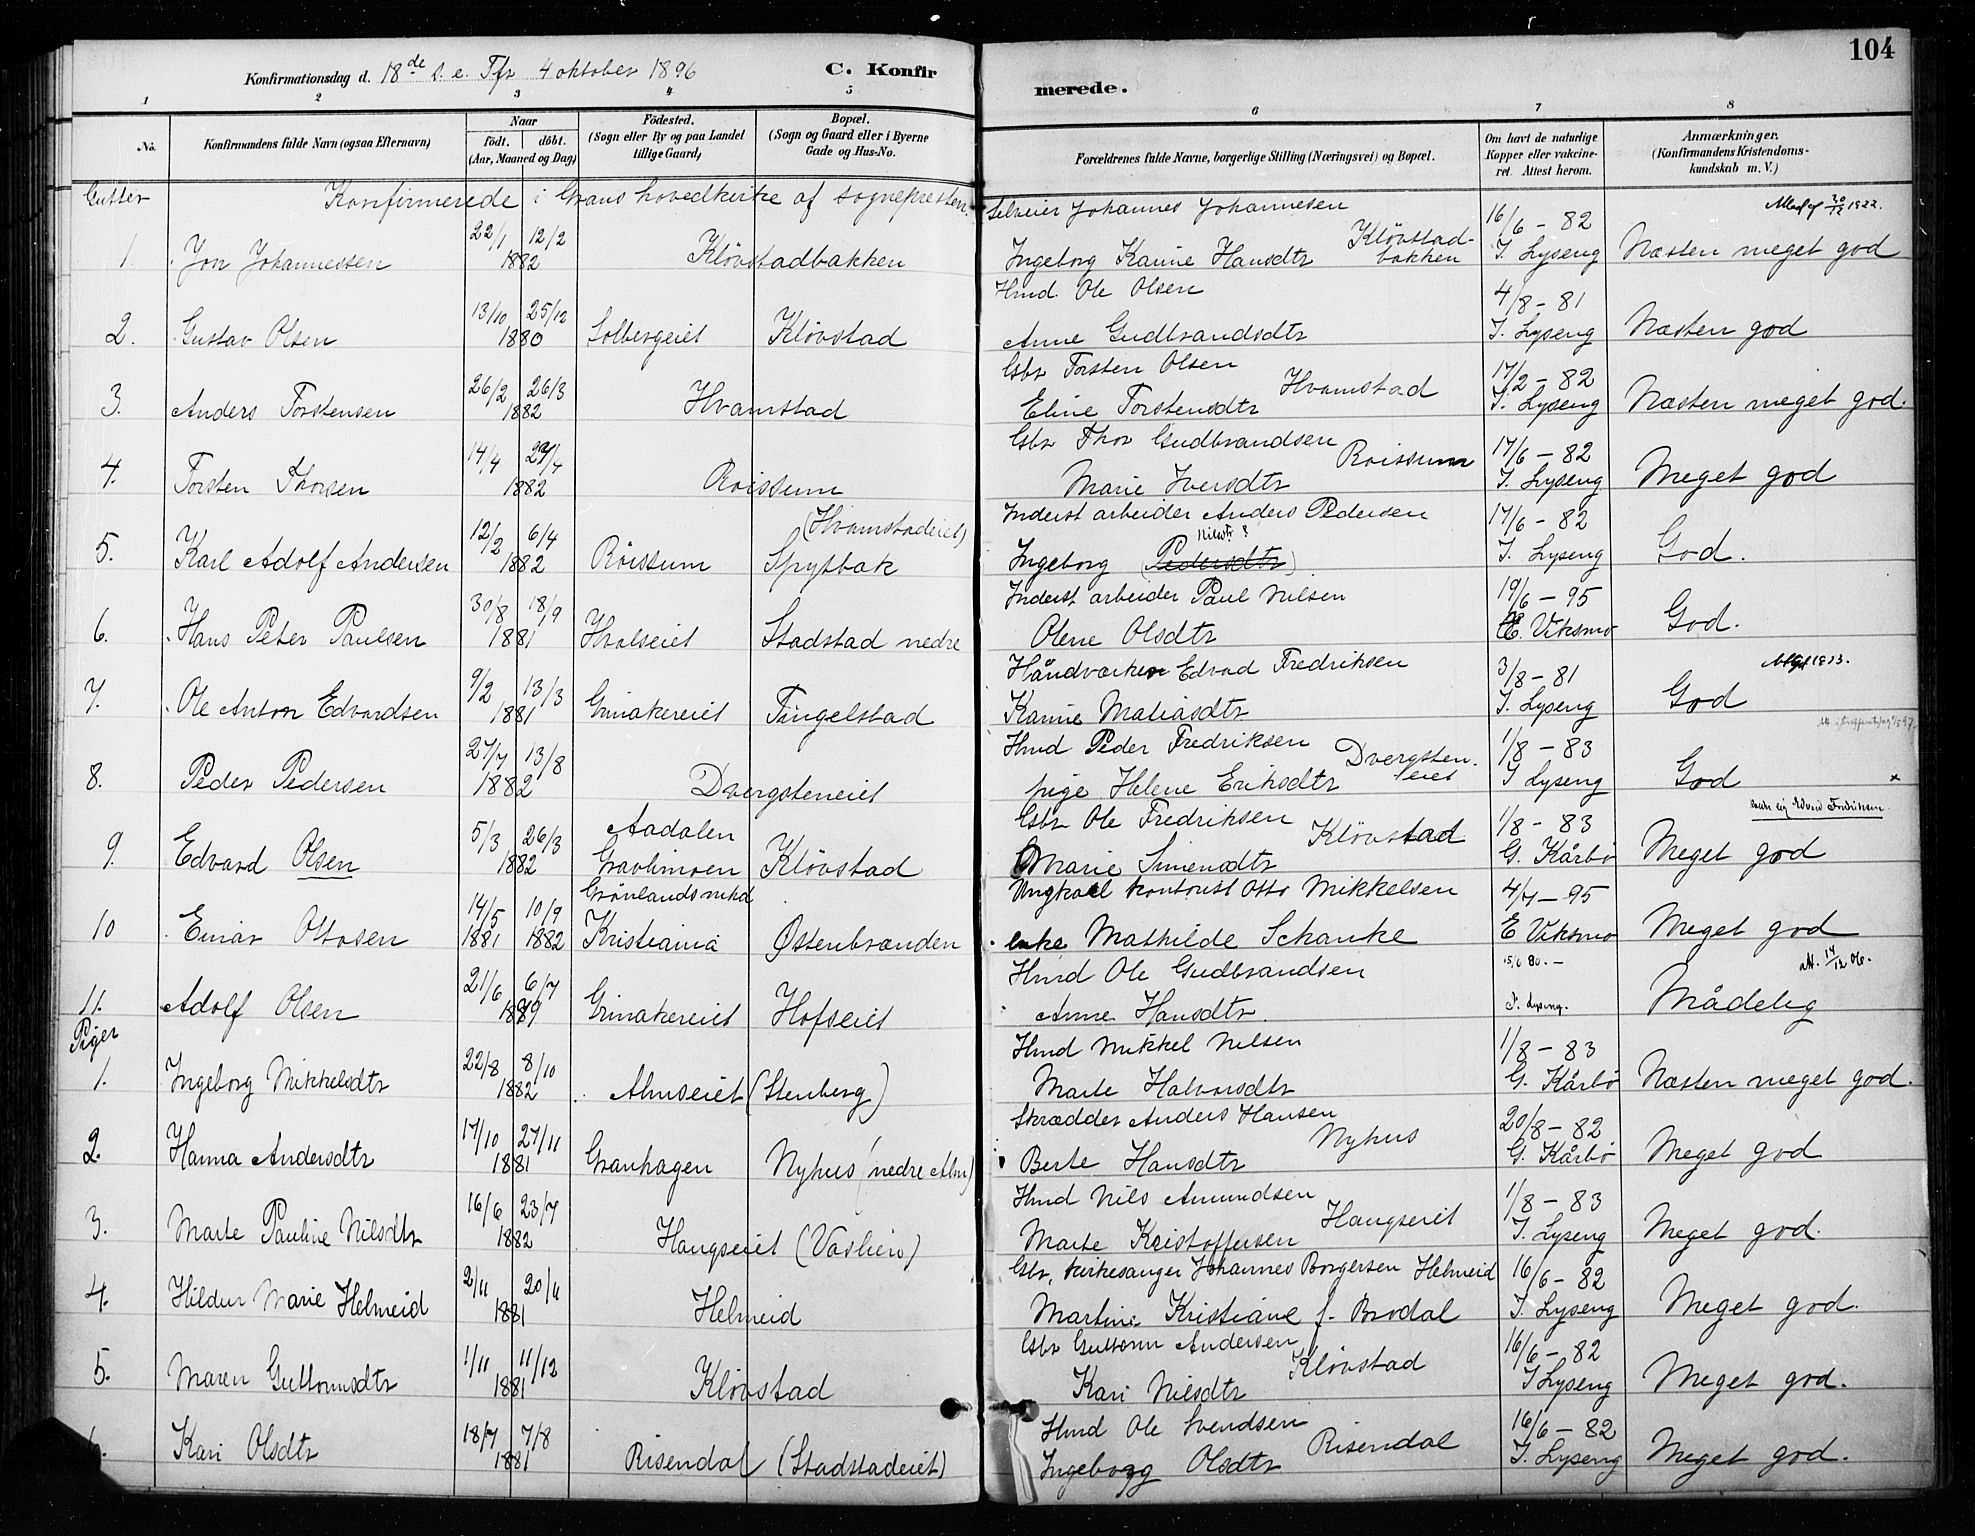 104
Konfirmationsdag d. 18de S. e. Tfr 4 oktober 1896 C. Konfirmerede.
1 2 3 4 5 6 7 8
No. Konfirmandens fulde Navn (ogsaa Efternavn) Naar födt. döbt. (Aar, Maaned og Dag) Födested. (Sogn eller By og paa Landet tillige Gaard) Bopæl. (Sogn og Gaard eller i Byerne Gade og Hus-No. Forældrenes fulde Navne, borgerlige Stilling (Næringsvei) og Bopæl. Om havt de naturlige Kopper eller vakcineret. Attest herom. Anmærkninger. (Konfirmandens Kristendomskundskab m. V.)
Gutter Konfirmerede i Grans hovedkirke af sognepresten.
1. Jon Johannessen 22/1 12/2 1882 Kløvstadbakken Selveier Johannes Johannesen Ingeborg Karine Hansdtr Kløvstadbakken 16/6 - 82 I. Lyseng Næsten meget god 20/12 1922.
2. Gustav Olsen 13/10 25/12 1880 Solbergeiet Kløvstad Hmd. Ole Olsen Anne Gudbrandsdtr 4/8 - 81 I. Lyseng Næsten god
3. Anders Torstensen 26/2 26/3 1882 Hvamstad Gbr Torsten Olsen Eline Torstensdtr Hvamstad 17/2 - 82 I. Lyseng Næsten meget god.
4. Torsten Thorsen 14/4 1882 Røissum Gbr Thor Gudbrandsen Marie Iversdtr Roissum 17/6 - 82 I. Lyseng Meget god
5. Karl Adolf Andersen 12/2 6/4 1882 Røissum Spytbak (Hvamstadeiet) Inderst arbeider Anders Pedersen Ingeborg (Pedersdtr) Nilsdtr ? 17/6 - 82 I. Lyseng God.
6. Hans Peter Paulsen 30/8 18/9 1881 Hvalseiet Stadstad nedre Inderst arbeider Paul Nilsen Olene Olsdtr 19/6 - 95 E. Viksmo God.
7. Ole Anton Edvardsen 9/2 13/3 1881 Grinakereiet Tingelstad Håndværker Edvad Fredriksen Karine Matiasdtr 3/8 - 81 I. Lyseng God
8. Peder Pedersen 27/7 13/8 1882 Dvergsteneiet Hmd Peder Fredriksen pige Helene Eriksdtr Dvergsteneiet 1/8 - 83 I Lyseng God x
9. Edvard Olsen 5/3 26/3 1882 Aadalen Gravlimoen Kløvstad Gbr Ole Fredriksen Marie Simensdtr Kløvstad 1/8 - 83 G. Kårbø Meget god Edvard Fredriksen
10 Einar Ottosen 14/5 1881 10/9 1882 Grønlands mkd Kristiania Østenbrænden Ungkarl kontorist Otto Mikkelsen enke Mathilde Schanke 4/7 - 95 E Viksmo Meget god
11. Adolf Olsen 21/6 6/7 1879 Grinakereiet Hofseiet Hmd Ole Gudbrandsen Anne Hansdtr. 15/6 80. - I. Lyseng. Mådelig att. 14/12 06.
Piger
1. Ingeborg Mikkelsdtr 22/8 8/10 1882 Almseiet (Stenberg) Hmd Mikkel Nilsen Marte Halvorsdtr 1/8 - 83 G. Kårbø Næsten meget god.
2. Hanna Andersdtr 17/10 27/11 1881 Granhagen Nyhus (nedre Alm) Skrædder Anders Hansen Berte Hansdtr Nyhus 20/8 - 82 G. Kårbø Meget god
3. Marte Pauline Nilsdtr 16/6 23/7 1882 Haugseiet (Vaslien) Hmd Nils Amundsen Marte Kristoffersen Haugseiet 1/8 - 83 I. Lyseng Meget god.
4. Hildur Marie Helmeid 2/11 20/11 1881 Helmeid Gbr, kirkesanger Johannes Borgersen Helmeid Martine Kristiane f. Brodal 16/6 - 82 I. Lyseng Meget god.
5. Maren Guttormsdtr 1/11 11/12 1881 Kløvstad Gbr Guttorm Andersen Kari Nilsdtr Kløvstad 16/6 - 82 I Lyseng Meget god.
6. Kari Olsdtr 18/7 7/8 1881 Risendal (Stadstadeiet) Hmd Ole Svendsen Ingeborg Olsdtr Risendal 16/6 - 82 I. Lyseng Meget god.